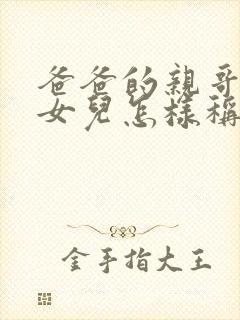 爸爸的親哥
女兒怎樣稱
金手指大王